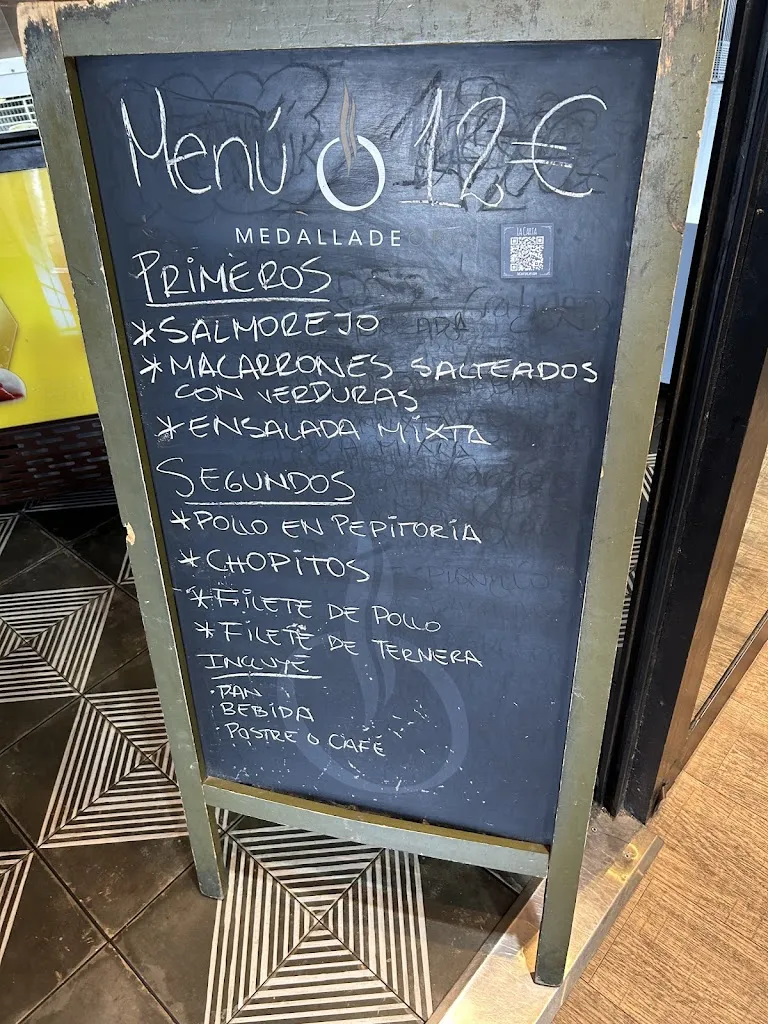 Menú 12€
MEDALLADE
LA CARTA
PRIMEROS
*SALMOREJO
*MACARRONES SALTEADOS
CON VERDURAS
*ENSALADA MIXTA
SEGUNDOS
*POLLO EN PEPITORIA
*CHOPITOS
*FILETE DE POLLO
*FILETE DE TERNERA
INCLUYE
·PAN
BEBIDA
·POSTRE O CAFÉ